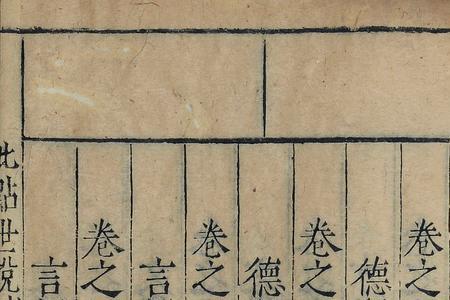 卷之
德
卷之
德
卷之
言
卷之
言
批點世說